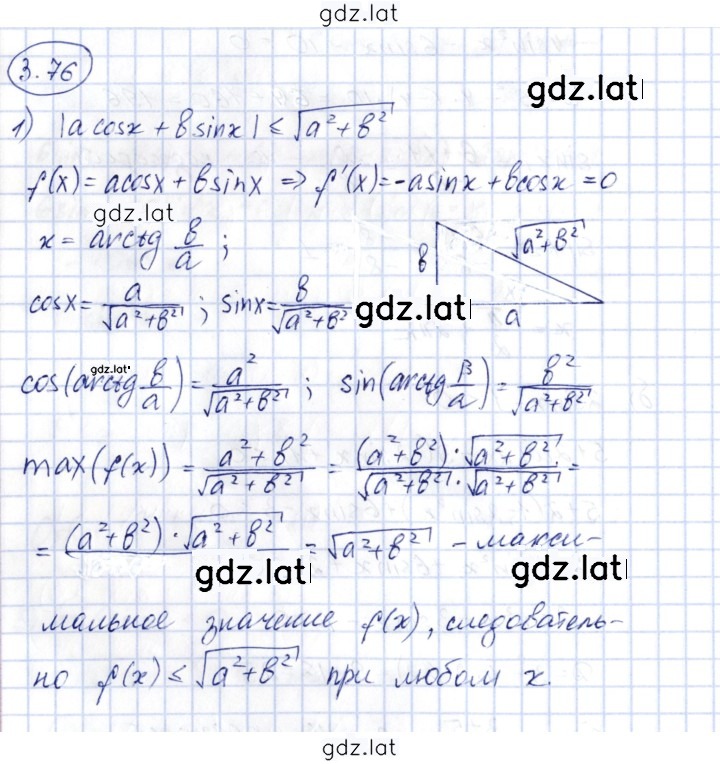 gdz.lat
3.76
gdz.lat
1) |a cosx + b sinx| ≤ √(a²+b²)
f(x) = acosx + bsinx ⇒ f'(x) = -asinx + bcosx = 0
gdz.lat
x = arctg b/a ;
b √(a²+b²) a
cosx = a/√(a²+b²) ; sinx = b/√(a²+b²)
gdz.lat
gdz.lat
cos(arctg b/a) = a²/√(a²+b²) ; sin(arctg β/a) = b²/√(a²+b²)
max(f(x)) = (a²+b²)/√(a²+b²) = (a²+b²)·√(a²+b²)/√(a²+b²)·√(a²+b²) =
= (a²+b²)·√(a²+b²) = √(a²+b²) - макси-
gdz.lat gdz.lat
мальное значение f(x), следователь-
но f(x) ≤ √(a²+b²) при любом x.
gdz.lat